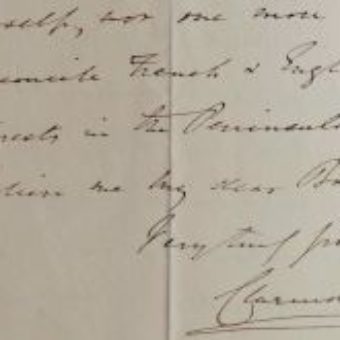 self, not one more
reconcile French & Engl
rests in the Peninsula
lieve me my dear B
Very truly
Claren